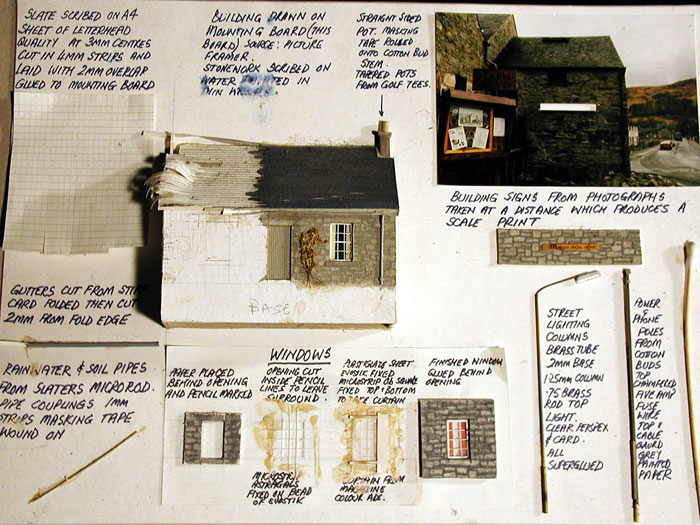 SLATE SCRIBED ON A4
SHEET OF LETTERHEAD
QUALITY AT 3MM CENTRES
CUT IN 4MM STRIPS AND
LAID WITH 2MM OVERLAP
GLUED TO MOUNTING BOARD
BUILDING DRAWN ON
MOUNTING BOARD (THIS
BOARD) SOURCE: PICTURE
FRAMER
STONEWORK SCRIBED ON
WATER
IN
STRAIGHT SIDED
POT. MASKING
TAPE ROLLED
ONTO COTTON BUD
STEM.
TAPERED POTS
FROM GOLF TEES.
BUILDING SIGNS FROM PHOTOGRAPHS
TAKEN AT A DISTANCE WHICH PRODUCES A
SCALE PRINT
BASE
GUTTERS CUT FROM STIFF
CARD FOLDED THEN CUT
2MM FROM FOLD EDGE
RAINWATER & SOIL PIPES
FROM SLATERS MICROROD.
PIPE COUPLINGS 1MM
STRIPS MASKING TAPE
WOUND ON
WINDOWS
PAPER PLACED
BEHIND OPENING
AND PENCIL MARKED
OPENING CUT
INSIDE PENCIL
LINES TO LEAVE
SURROUND.
MICROSTRIP
ASTRAGALS
FIXED ON BEAD
OF EVOSTIK
PLASTIGLAZE SHEET
EVOSTIK FIXED
MICROSTRIP
FIXED TOP & BOTTOM
TO CURTAIN
CURTAIN FROM
MAGAZINE
COLOUR ADS.
FINISHED WINDOW
GLUED BEHIND
OPENING
STREET
LIGHTING
COLUMNS
BRASS TUBE
2MM BASE
1.25MM COLUMN
.75 BRASS
ROD TOP
LIGHT.
CLEAR PERSPEX
& CARD.
ALL
SUPERGLUED
POWER
&
PHONE
POLES
FROM
COTTON
BUDS
TOP
CHAMFERED
FIVE AMP
FUSE
WIRE
TOP &
CABLE
GAURD
GREY
PAINTED
PAPER